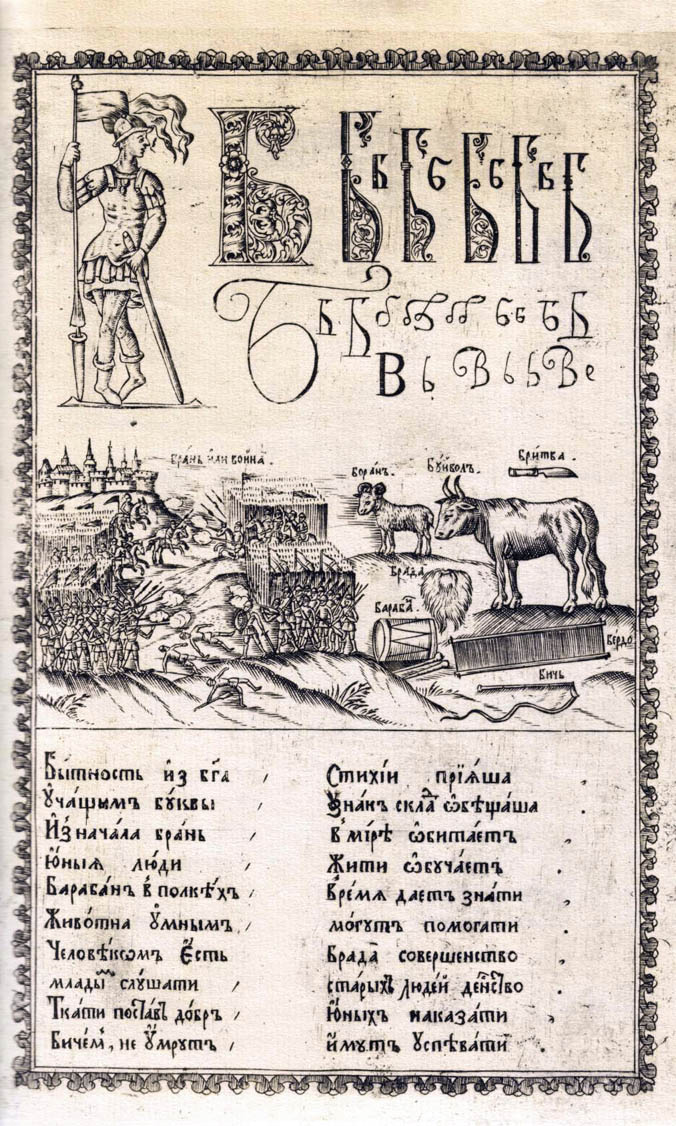 Б Б Б Б Б Б Б Б Б Б
Б Б Б
В
В В е
Бра́нь и҆лѝ война̀.
Бора́нъ.
Бу́йволъ.
Бри́тва.
Брада̀
Бараба́
Бердо
Бичь
Бы́тность и҆з бг҃а , Стихі́и прїѧ́ша
Ѹ҆ча́щымъ бу́квы Ѹзна́къ скла ѡ҆бѣща́ша .
И҆знача́ла бра́нь , в̾ мі́рѣ ѡ҆бита́етъ .
Ю҆́ныѧ лю́ди , Жи́ти ѡ҆буча́етъ .
Бараба́нъ в̾ полкѣ́хъ , Вре́мѧ дае́тъ зна́ти ,
Живо́тна ᲂу҆́мнымъ , мо́гутъ помога́ти .
Человѣ́кѡмъ Е҆́сть Брада̀ совершенство ,
млады слꙋ́шати , ста́рыхъ люде́й де́нство .
Тка́ти поста́въ до́бръ , Ю҆́ныхъ наказа́ти ,
Биче́м, не ᲂу҆́мрутъ , и҆́мутъ ᲂу҆спѣва́ти .